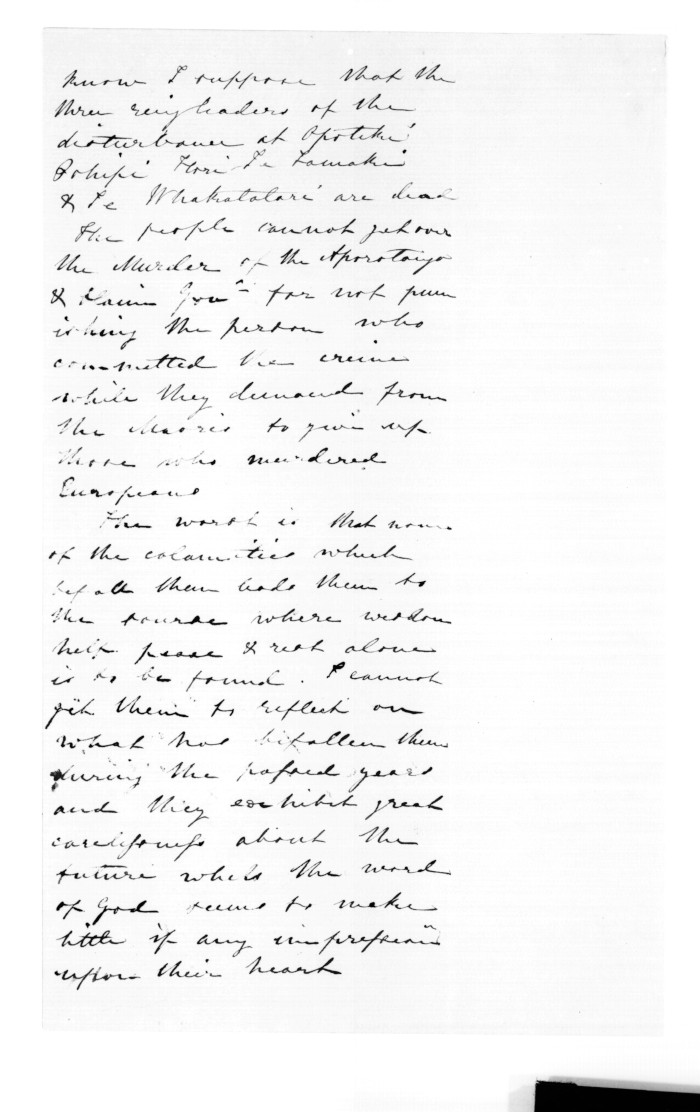 know I suppose that the
three ringleaders of the
disturbance at Opotiki
Hori Te Tamaki
& Te Whakatatare are dead
The people cannot get over
the Murder of the
& blame Govt for not pun
ishing the person who
committed the crime
while they demand from
the Maoris to give up
those who murdered
Europeans
The worst is that none
of the calamities which
befall them leads them to
the source where wisdom
help peace & rest alone
is to be found. I cannot
get them to reflect on
what has befallen them
during the passed years
and they exhibit great
carelessness about the
future whilst the word
of God seems to make
little if any impression
upon their heart